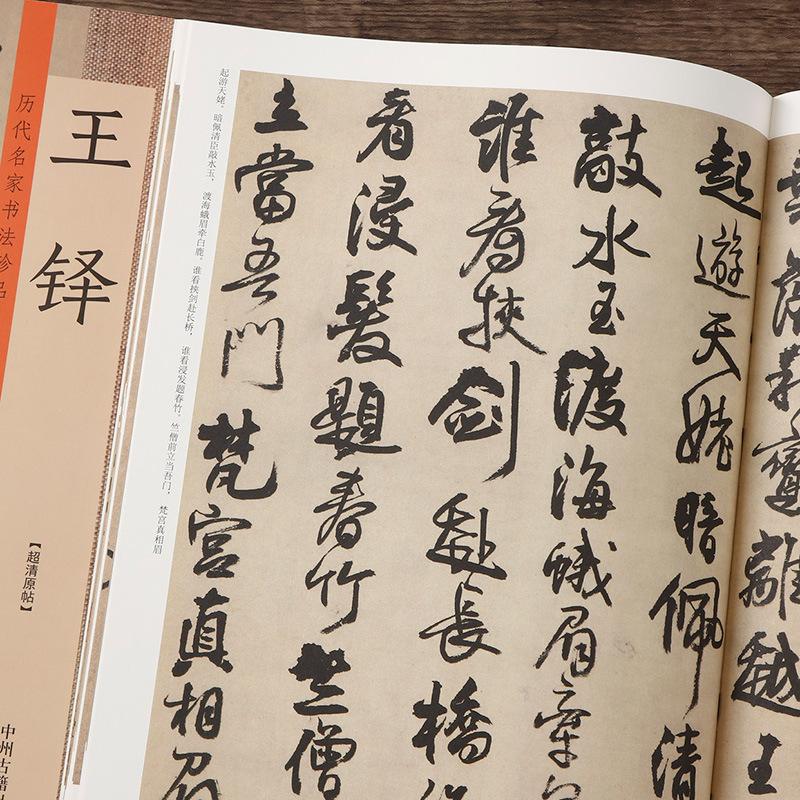 历代名家书法珍品
王铎
【超清原帖】
中州古籍
起游天姥，暗佩清臣敲水玉，渡海蛾眉牵白鹿。谁看挟剑赴长桥，谁看浸发题春竹。竺僧前立当吾门，梵宫真相眉
落秋鸞離越王
起遊天姥暗佩清
敲水玉渡海蛾眉牽
誰看挾劍赴長橋
看浸髮題春竹竺僧
立當吾門梵宮真相眉